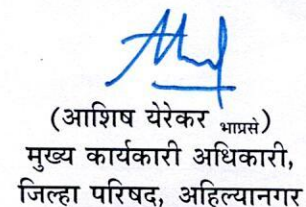 (आशिष येरेकर भाप्रसे)
मुख्य कार्यकारी अधिकारी,
जिल्हा परिषद, अहिल्यानगर